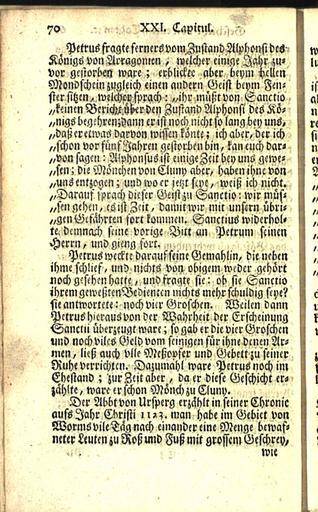 70 XXI. Capitul.
Petrus fragte ferners vom Zustand Alphonsi des
Königs von Arragonien, welcher einige Jahr zu-
vor gestorben ware; erblickte aber beym hellen
Mondschein zugleich einen andern Geist beym Fen-
ster sitzen, welcher sprach: „ihr müßt von Sanctio
„keinen Bericht über den Zustand Alphonsi des Kö-
„nigs begehren dann er ist noch nicht so lang bey uns,
„daß er etwas darvon wissen könte; ich aber, der ich
„schon vor fünf Jahren gestorben bin, kan euch dar-
„von sagen: Alphonsus ist einige Zeit bey uns gewe-
„sen; die Mönchen von Cluny aber, haben ihne von
„uns entzogen; und wo er jetzt seye, weiß ich nicht.
„Darauf sprach dieser Geist zu Sanctio: wir müs-
„sen gehen, es ist Zeit, damit wir mit unsern übri-
„gen Gefährten fort kommen. Sanctius widerhol-
te demnach seine vorige Bitt an Petrum seinen
Herrn, und gieng fort.
Petrus weckte darauf seine Gemahlin, die neben
ihme schlief, und nichts von obigem weder gehört
noch gesehen hatte, und fragte sie: ob sie Sanctio
ihrem gewesten Bedienten nichts mehr schuldig seye?
sie antwortete: noch vier Groschen. Weilen dann
Petrus hieraus von der Wahrheit der Erscheinung
Sanctii überzeugt ware; so gab er die vier Groschen
und noch viles Geld vom seinigen für ihne denen Ar-
men, ließ auch vile Meßopfer und Gebett zu seiner
Ruhe verrichten. Dazumahl ware Petrus noch im
Ehestand; zur Zeit aber, da er diese Geschicht er-
zählte, ware er schon Mönch zu Cluny.
Der Abbt von Ursperg erzählt in seiner Chronic
aufs Jahr Christi 1123. man habe im Gebiet von
Worms vile Täg nach einander eine Menge bewaf-
neter Leuten zu Roß und Fuß mit grossem Geschrey,
wie